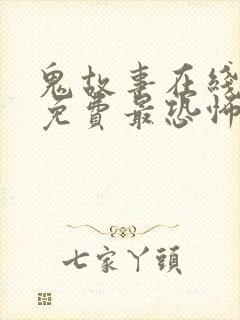 鬼故事在綫
免費最恐怖
七家丫頭